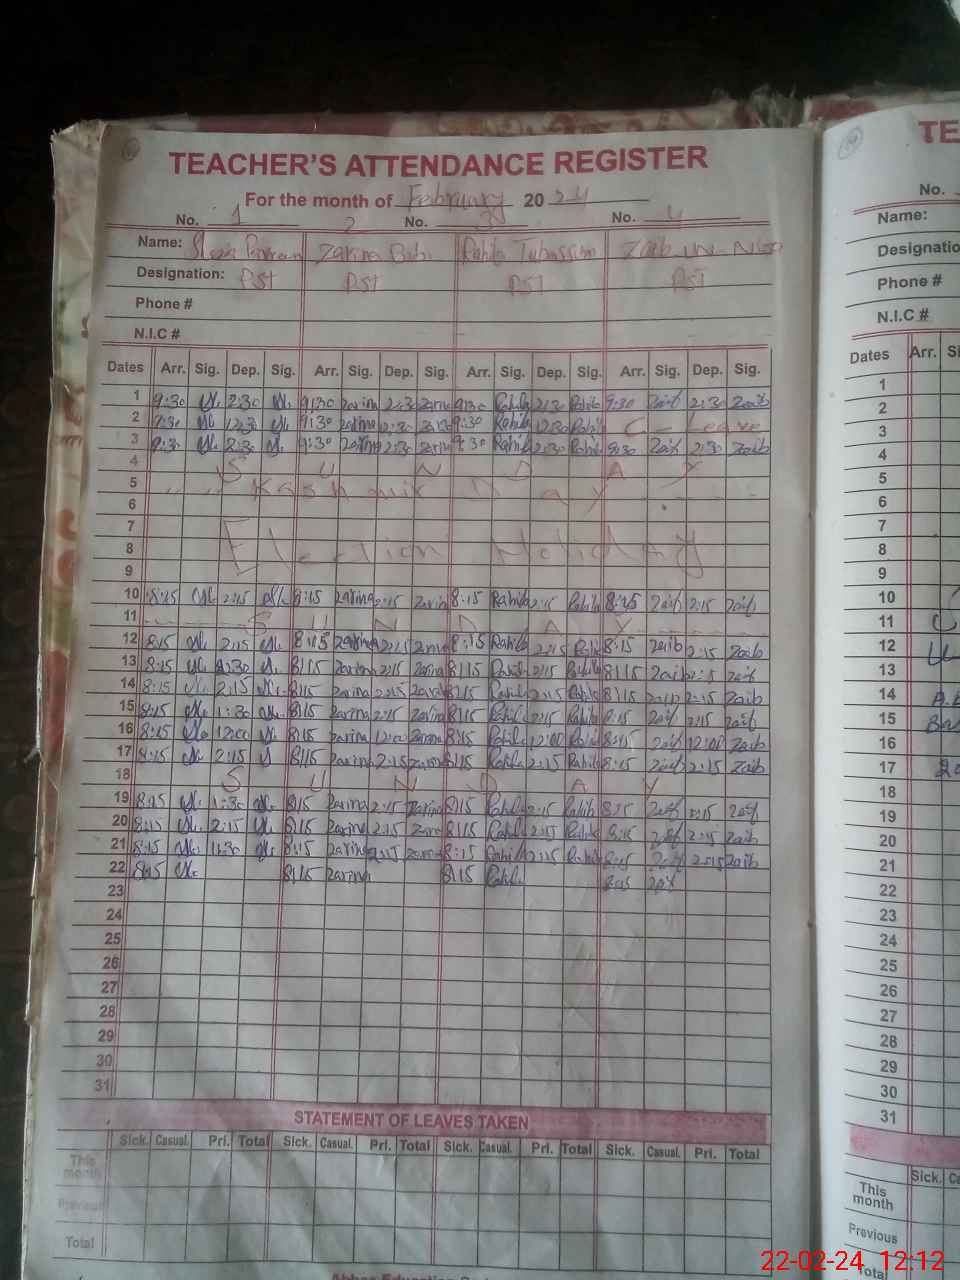 TEACHER'S ATTENDANCE REGISTER
For the month of February 2024
No. 1 2 No. 3 No. 4
Name: Zarina Bibi Rahila Tubassim Zaib un Nisa
Designation: PST PST PST PST
Phone #
N.I.C #
Dates Arr. Sig. Dep. Sig. Arr. Sig. Dep. Sig. Arr. Sig. Dep. Sig. Arr. Sig. Dep. Sig.
1 9:30 2:30 9:30 Zarina 2:30 Zarina 9:30 Rahila 2:30 Rahila 9:30 Zaib 2:30 Zaib
2 9:30 12:30 9:30 Zarina 12:30 Zarina 9:30 Rahila 12:30 Rahila C - Leave
3 9:30 2:30 9:30 Zarina 2:30 Zarina 9:30 Rahila 2:30 Rahila 9:30 Zaib 2:30 Zaib
4 S U N D A Y
5 Kashmir Day
6
7
8 Election Holiday
9
10 8:15 2:15 8:15 Zarina 2:15 Zarina 8:15 Rahila 2:15 Rahila 8:15 Zaib 2:15 Zaib
11 S U N D A Y
12 8:15 2:15 8:15 Zarina 2:15 Zarina 8:15 Rahila 2:15 Rahila 8:15 Zaib 2:15 Zaib
13 8:15 8:15 Zarina 2:15 Zarina 8:15 Rahila 2:15 Rahila 8:15 Zaib 2:15 Zaib
14 8:15 2:15 8:15 Zarina 2:15 Zarina 8:15 Rahila 2:15 Rahila 8:15 Zaib 2:15 Zaib
15 8:15 1:30 8:15 Zarina 2:15 Zarina 8:15 Rahila 2:15 Rahila 8:15 Zaib 2:15 Zaib
16 8:15 12:00 8:15 Zarina 12:00 Zarina 8:15 Rahila 12:00 Rahila 8:15 Zaib 12:00 Zaib
17 8:15 2:15 8:15 Zarina 2:15 Zarina 8:15 Rahila 2:15 Rahila 8:15 Zaib 2:15 Zaib
18 S U N D A Y
19 8:15 1:30 8:15 Zarina 2:15 Zarina 8:15 Rahila 2:15 Rahila 8:15 Zaib 2:15 Zaib
20 8:15 2:15 8:15 Zarina 2:15 Zarina 8:15 Rahila 2:15 Rahila 8:15 Zaib 2:15 Zaib
21 8:15 11:30 8:15 Zarina 2:15 Zarina 8:15 Rahila 2:15 Rahila 8:15 Zaib 2:15 Zaib
22 8:15 8:15 Zarina 8:15 Rahila 8:15 Zaib
23
24
25
26
27
28
29
30
31
STATEMENT OF LEAVES TAKEN
Sick. Casual. Pri. Total Sick. Casual. Pri. Total Sick. Casual. Pri. Total Sick. Casual. Pri. Total
This month
Previous
Total
TE
No.
Name:
Designatio
Phone #
N.I.C #
Dates Arr. Si
1
2
3
4
5
6
7
8
9
10
11
12
13
14
15
16
17
18
19
20
21
22
23
24
25
26
27
28
29
30
31
Sick. Ca
This month
Previous
Total
22-02-24 12:12